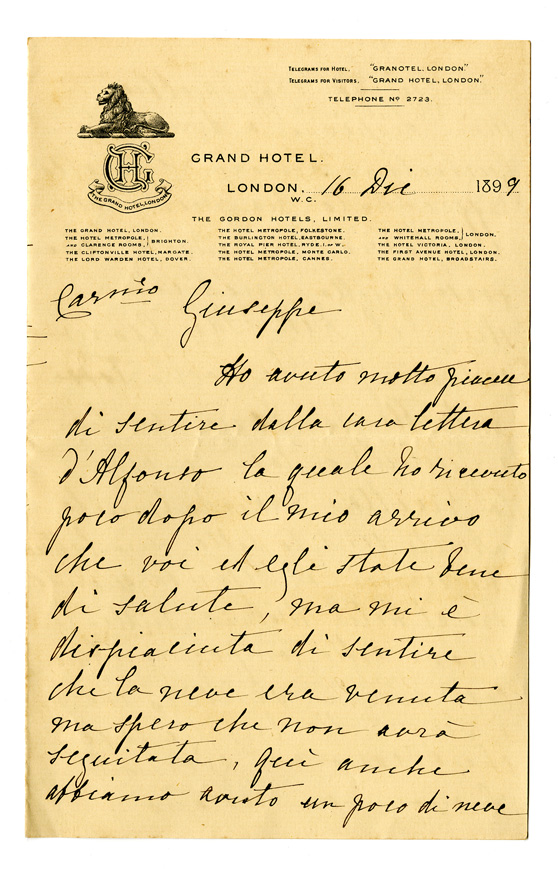 TELEGRAMS FOR HOTEL, "GRANOTEL, LONDON."
TELEGRAMS FOR VISITORS, "GRAND HOTEL, LONDON."
TELEPHONE No 2723.
GH
THE GRAND HOTEL, LONDON
GRAND HOTEL.
LONDON, 16 Dic 1899
W.C.
THE GORDON HOTELS, LIMITED.
THE GRAND HOTEL, LONDON.
THE HOTEL METROPOLE,
AND CLARENCE ROOMS, BRIGHTON.
THE CLIFTONVILLE HOTEL, MARGATE.
THE LORD WARDEN HOTEL, DOVER.
THE HOTEL METROPOLE, FOLKESTONE.
THE BURLINGTON HOTEL, EASTBOURNE.
THE ROYAL PIER HOTEL, RYDE, I. OF W.
THE HOTEL METROPOLE, MONTE CARLO.
THE HOTEL METROPOLE, CANNES.
THE HOTEL METROPOLE,
AND WHITEHALL ROOMS, LONDON.
THE HOTEL VICTORIA, LONDON.
THE FIRST AVENUE HOTEL, LONDON.
THE GRAND HOTEL, BROADSTAIRS.
Carmo Giuseppe
Ho avuto molto piacere
di sentire dalla cara lettera
d'Alfonso la quale ho ricevuto
poco dopo il mio arrivo
che voi ed egli state bene
di salute, ma mi è
dispiaciuta di sentire
che la neve era venuta
ma spero che non avrà
seguitata, qui anche
abbiamo avuto un poco di neve